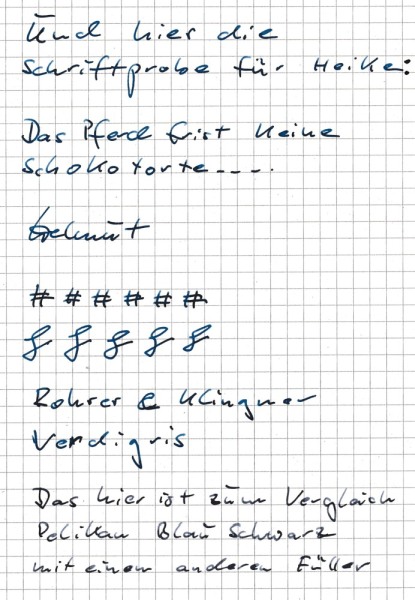 Und hier die
Schriftprobe für Heike:
Das Pferd frist keine
Schokotorte----.
# # # # # #
f f f f f
Rohrer & Klingner
Verdigris
Das hier ist zum Vergleich
Pelikan Blau Schwarz
mit einem anderen Füller